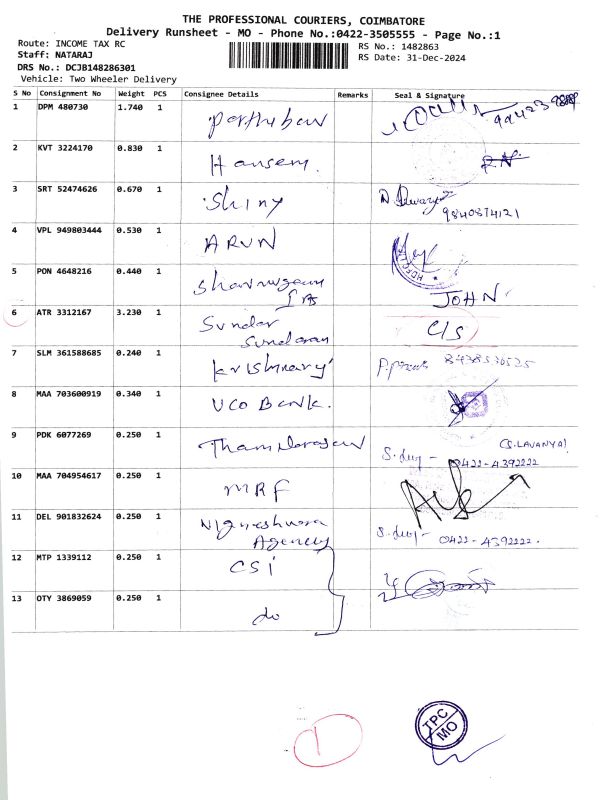 THE PROFESSIONAL COURIERS, COIMBATORE
Delivery Runsheet - MO - Phone No.:0422-3505555 - Page No.:1
Route: INCOME TAX RC
RS No.: 1482863
Staff: NATARAJ
RS Date: 31-Dec-2024
DRS No.: DCJB148286301
Vehicle: Two Wheeler Delivery
S No Consignment No Weight PCS Consignee Details Remarks Seal & Signature
1 DPM 480730 1.740 1
2 KVT 3224170 0.830 1
3 SRT 52474626 0.670 1 Shiny
9840874121
4 VPL 949803444 0.530 1 ARUN
5 PON 4648216 0.440 1
IAS JOHN
6 ATR 3312167 3.230 1 Sundar C/S
Sundaram
7 SLM 361588685 0.240 1
8 MAA 703600919 0.340 1 UCO Bank.
9 PDK 6077269 0.250 1 (S.LAVANYA)
0422-4392222
10 MAA 704954617 0.250 1 MRF
11 DEL 901832624 0.250 1 Vigneshwara
Agency 0422-4392222.
12 MTP 1339112 0.250 1 CSI
13 OTY 3869059 0.250 1 do
TPC
MO